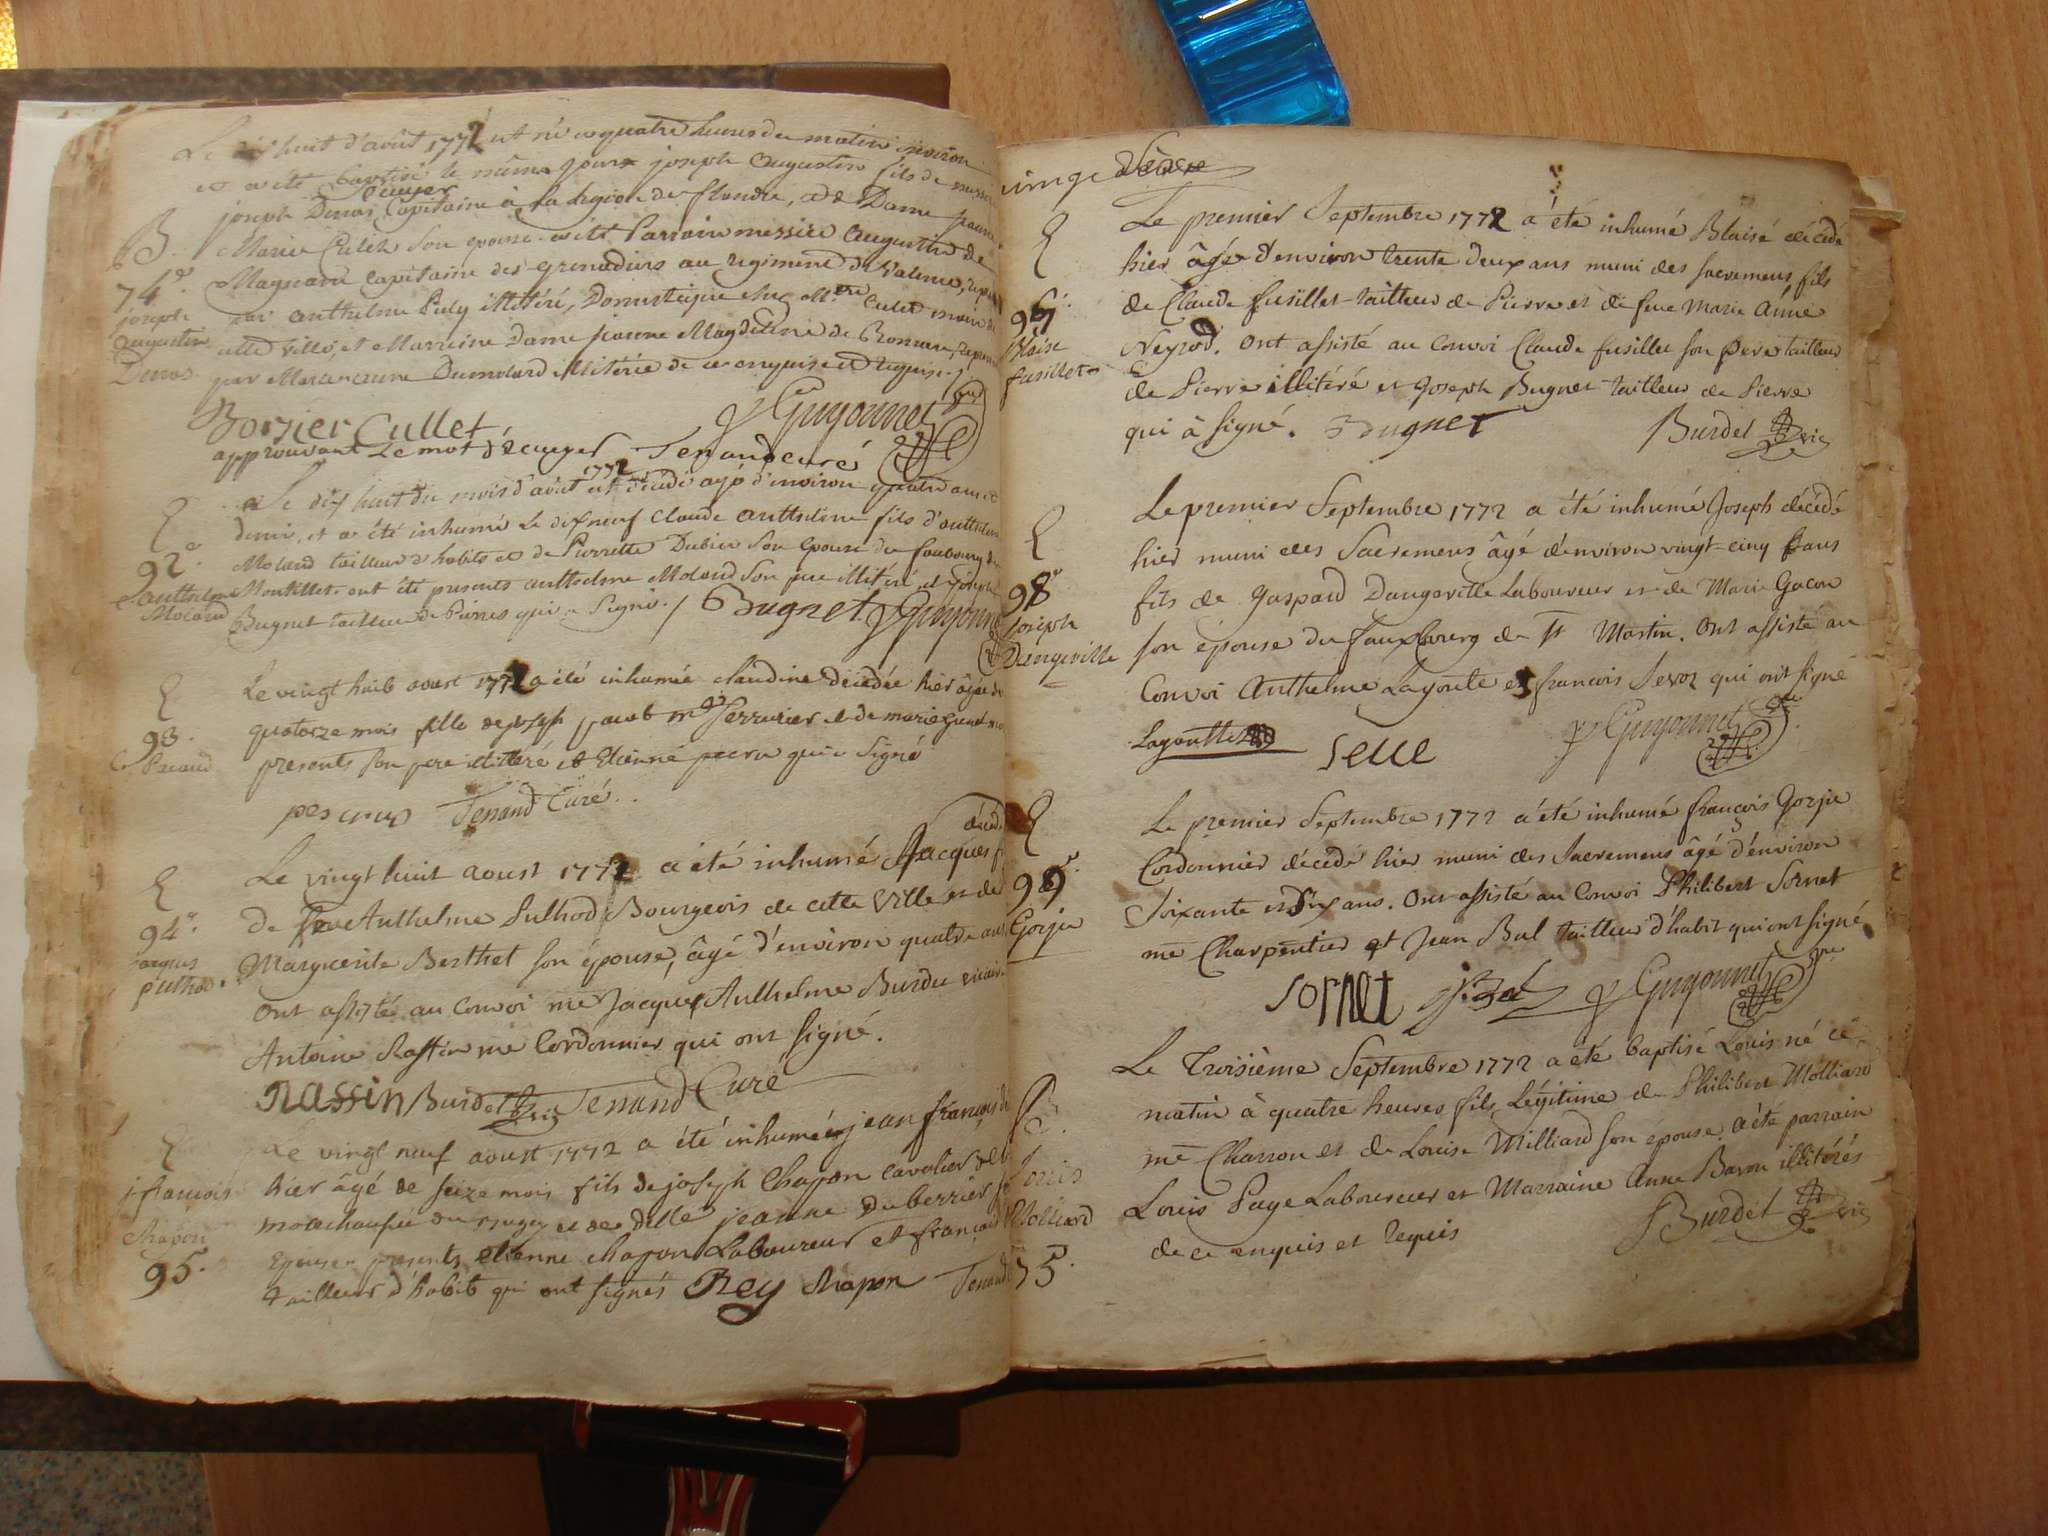 Le dix huit d'août 1772 est né a quatre heures du matin environ
et a été baptisé le même jour joseph augustin fils de messire
Ecuyer
joseph Capitaine à la legion de flandre, et de Dame jeanne
Marie Culet son epouse. a été Parrain messire augustin de
capitaine des grenadiers au regiment de
par anthelme illitéré, Domestique chez Mr. Culet maire de
cette ville, et Marraine Dame jeanne Magdeleine de
par illitérée de ce enquise et requise.
B.
74e.
joseph
augustin
Borsier Cullet Guyonnet
approuvant le mot d'écuyer Tenand curé
Le dix huit du mois d'août 1772 est décédé agé d'environ quatre ans et
demi, et a été inhumé le dix neuf Claude anthelme fils d'anthelme
Moland tailleur d'habits et de Pierrette Dubien son epouse du faubourg de
Montillet. ont été presents anthelme Moland son pere illitéré et joseph
Bugnet tailleur de Pierres qui a signé. / Bugnet Guyonnet
92e.
anthelme
Moland
Le vingt huit aoust 1772 a été inhumée claudine décédée hier âgée de
quatorze mois fille de joseph pacoud me serrurier et de marie
presents son pere illitéré et Etienne pecru qui a signé
93.
Tenand Curé.
décédé
Le vingt huit aoust 1772 a été inhumé Jacques f
De feu Anthelme Pulhod Bourgeois de cette Ville et de
Marguerite Berthet son épouse, âgé d'environ quatre ans
ont assisté au Convoi me Jacques Anthelme Burdet vicaire
Antoine Rassin me Cordonnier qui ont signé.
94e.
Jacques
pulhod.
Rassin Burdet vic Tenand Curé
Le vingt neuf aoust 1772 a été inhumé jean françois dé
hier âgé de seize mois fils de joseph Chapon cavalier de la
marechaussée du bugey et de dlle jeanne duberrier son
Epouse presents etienne chapon Laboureur et françois
tailleur d'habits qui ont signés Rey Chapon Tenand
j françois
Chapon
95.
vingt deux
Le premier Septembre 1772 a été inhumé Blaise décédé
hier âgé d'environ trente deux ans muni des sacremens, fils
de Claude fusillet tailleur de Pierre et de feue Marie Anne
Neyrod. ont assisté au Convoi Claude fusillet son pere tailleur
de Pierre illitéré et Joseph Bugnet tailleur de Pierre
qui a signé. Bugnet Burdet vic
Blaise
fusillet
Le premier Septembre 1772 a été inhumé Joseph décédé
hier muni des Sacremens âgé d'environ vingt-cinq ans
fils de Gaspard Dangeville Laboureur et de Marie Gacon
son épouse du fauxbourg de St Martin. Ont assisté au
Convoi Anthelme Lagoutte et françois Sevoz qui ont signé
98e
Joseph
Dangeville
Lagoutte Guyonnet
Le premier Septembre 1772 a été inhumé françois Gorju
Cordonnier décédé hier muni des Sacremens âgé d'environ
Soixante et dix ans. Ont assisté au Convoi Philibert Sornet
me Charpentier et Jean Bal tailleur d'habit qui ont signé
99e.
Gorju
Sornet j. Bal Guyonnet
Le Troisième Septembre 1772 a été baptisé Louis né ce
matin à quatre heures fils Légitime de Philibert Molliard
me Charron et de Louise Milliard son épouse. a été parrain
Louis Page Laboureur et Marraine Anne Baron illitérés
de ce enquis et requis Burdet vic
B.
Louis
Molliard
75.